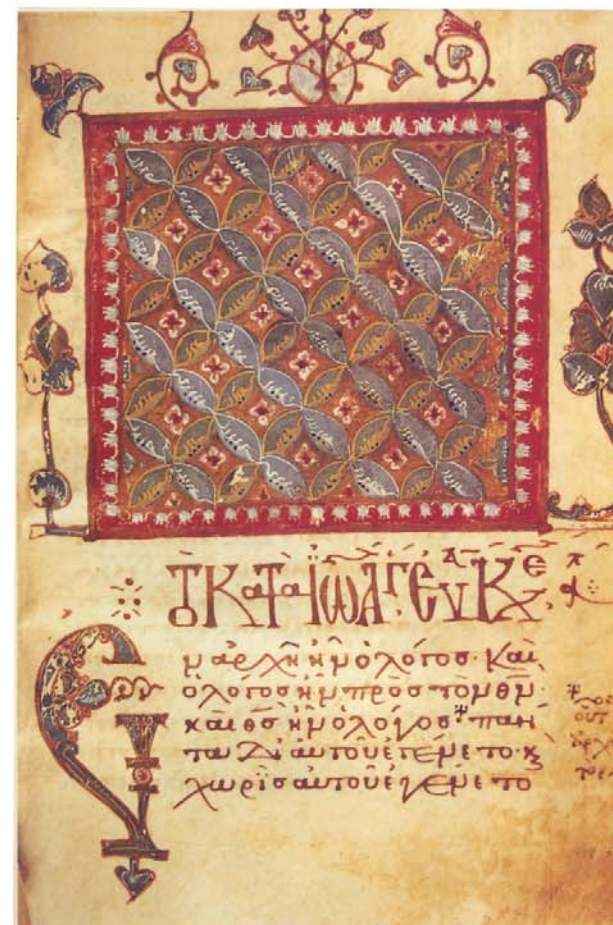 Τὸ Κατὰ Ἰωά ἅγ Εὐα Κε
Ἐν ἀρχῆ ἦν ὁ λόγος· Καὶ
ὁ λόγος ἦν πρὸς τὸν θν·
καὶ θς ἦν ὁ λόγος· παν
τα δι' αὐτοῦ ἐγένετο· ϗ
χωρὶς αὐτοῦ ἐγένετο